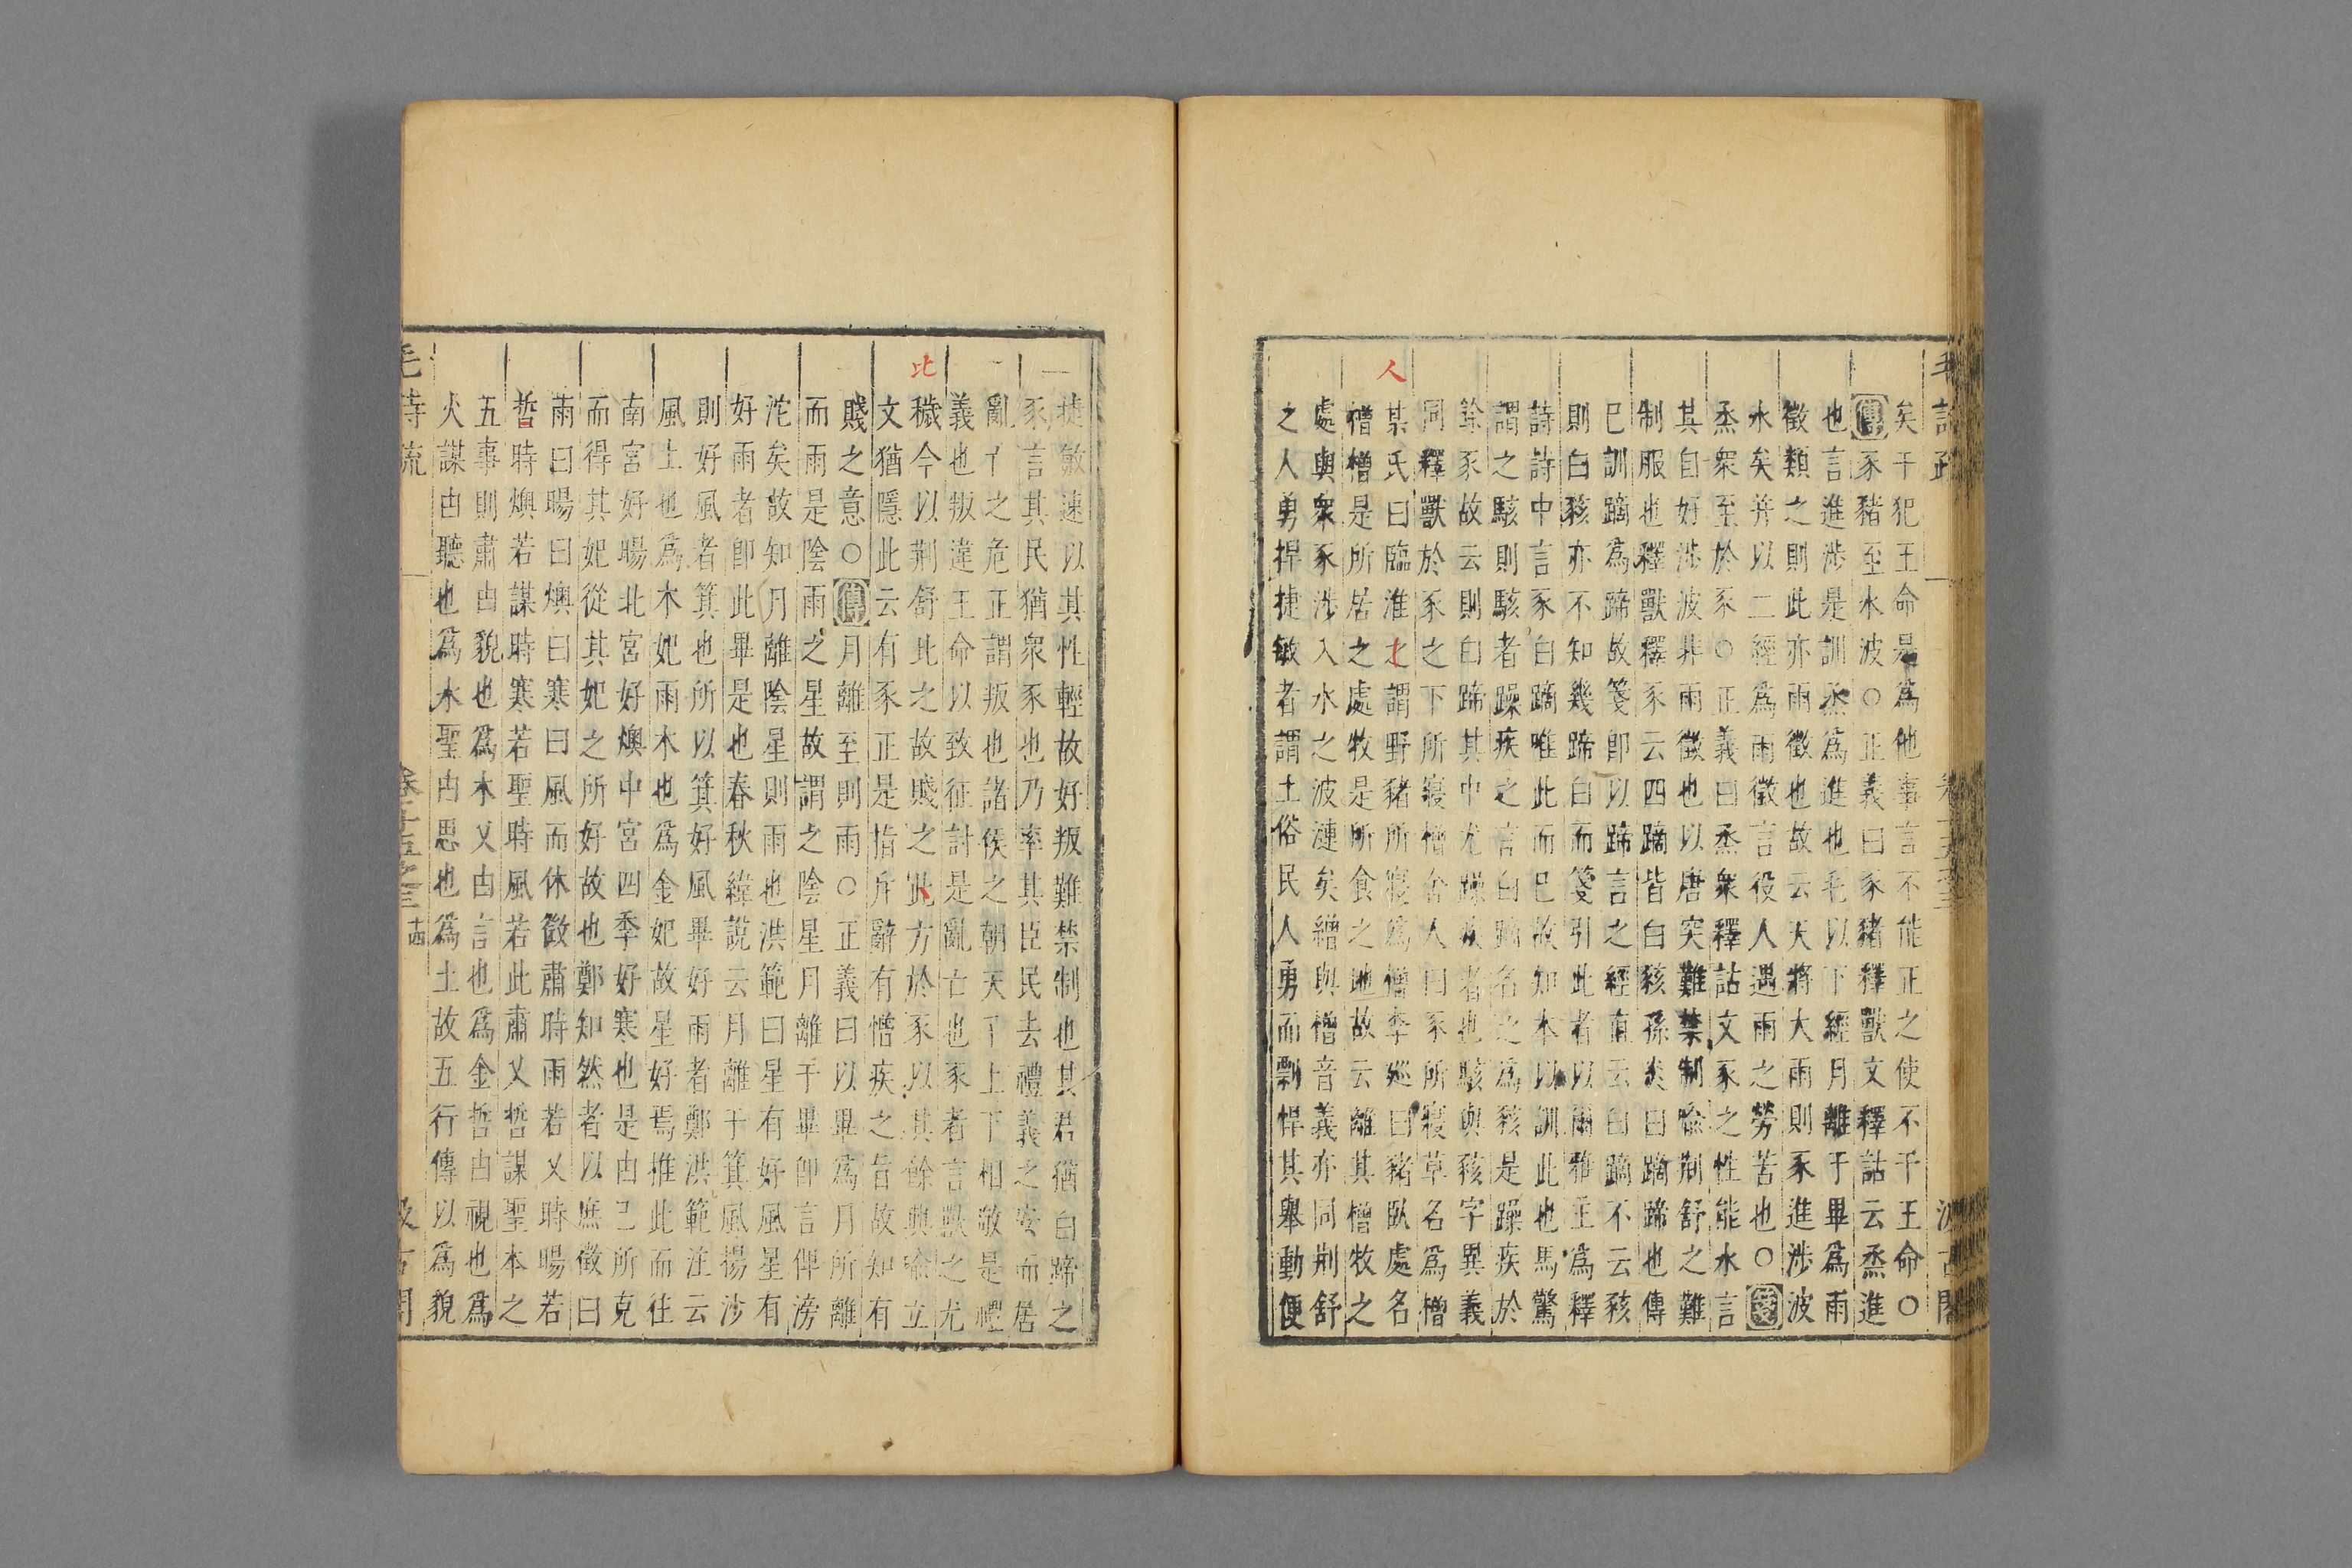 毛詩疏 卷十五之三 汲古閣
矣干犯王命是爲他事言不能正之使不干王命○
傳豕豬至水波○正義曰豕豬釋獸文釋詁云烝進
也言進涉是訓烝爲進也毛以下經月離于畢爲雨
徵類之則此亦雨徵也故云天將大雨則豕進涉波
水矣并以二經爲雨徵言役人遇雨之勞苦也○箋
烝衆至於豕○正義曰烝衆釋詁文豕之性能水言
其自好涉波非雨徵也以唐突難禁制喻荆舒之難
制服也釋獸釋豕云四蹢皆白豥孫炎曰蹢蹄也傳
巳訓蹢爲蹄故箋卽以蹄言之經直云白蹢不云豥
則白豥亦不知幾蹄白而箋引此者以爾雅主爲釋
詩詩中言豕白蹢唯此而巳故知本以訓此也馬驚
謂之駭則駭者躁疾之言白蹢名之爲豥是躁疾於
餘豕故云則曰蹄其中尤躁疾者也駭與豥字異義
同釋獸於豕之下所寢橧舍人曰豕所寢草名爲橧
人
某氏曰臨淮之謂野豬所寢爲橧李巡曰豬臥處名
橧橧是所居之處牧是所食之地故云離其橧牧之
處與衆豕涉入水之波漣矣繒與橧音義亦同荆舒
之人勇捍捷敏者謂土俗民人勇而剽悍其舉動便
捷敏速以其性輕故好叛難禁制也其君猶白蹄之
豕言其民猶衆豕也乃率其臣民去禮義之安而居
亂亡之危正謂叛也諸侯之朝天子上下相敬是禮
義也叛違王命以致征討是亂亡也豕者言獸之尤
比
穢今以荆舒此之故賤之此方於豕以其餘與喻立
文猶隱此云有豕正是指斥辭有憎疾之旨故知有
賤之意○傳月離至則雨○正義曰以畢爲月所離
而雨是陰雨之星故謂之陰星月離于畢卽言俾滂
沱矣故知月離陰星則雨也洪範曰星有好風星有
好雨者卽此畢是也春秋緯說云月離于箕風揚沙
則好風者箕也所以箕好風畢好雨者鄭洪範注云
風土也爲木妃雨木也爲金妃故星好焉推此而往
南宮好暘北宮好燠中宮四季好寒也是由己所克
而得其妃從其妃之所好故也鄭知然者以庶徵曰
雨曰暘曰燠曰寒曰風而休徵肅時雨若乂時暘若
晢時燠若謀時寒若聖時風若此肅乂哲謀聖本之
五事則肅由貌也爲木乂由言也爲金哲由視也爲
火謀由聽也爲水聖由思也爲土故五行傳以爲貌
毛詩疏 卷十五之三 十四 汲古閣